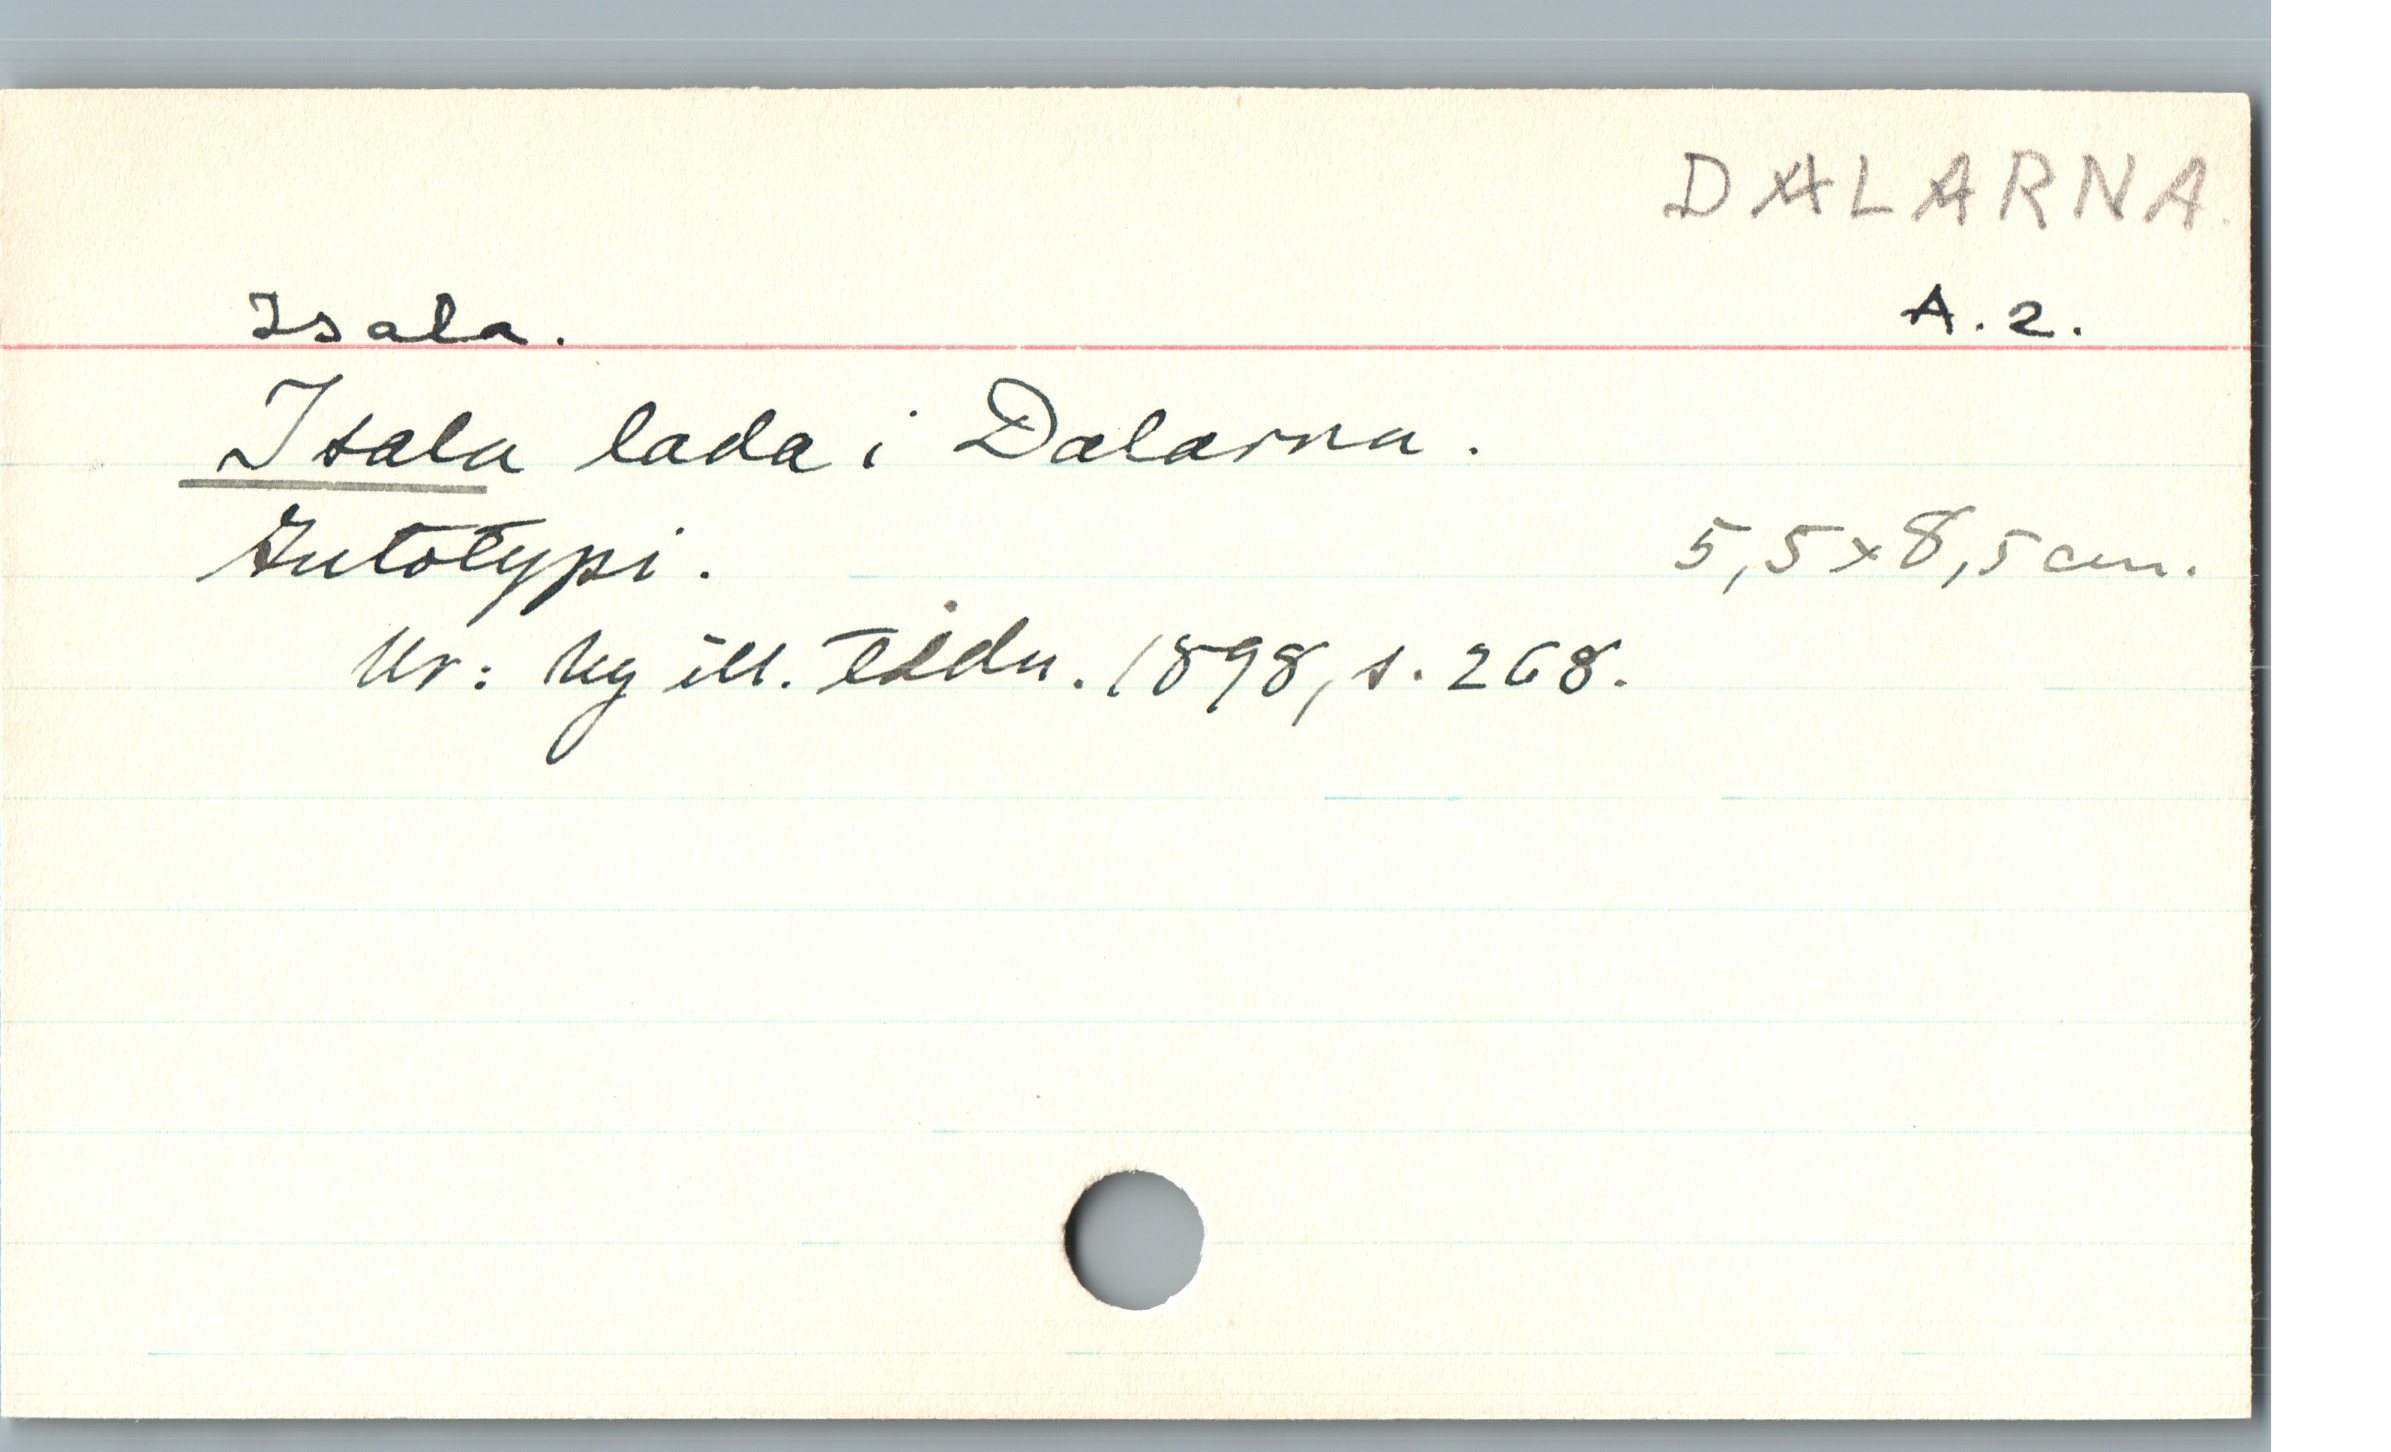 DALARNA.
Isala. A.2.
Isala lada i Dalarna.
Autotypi. 5,5x8,5 cm.
Ur: Ny ill. tidn. 1898, s. 268.